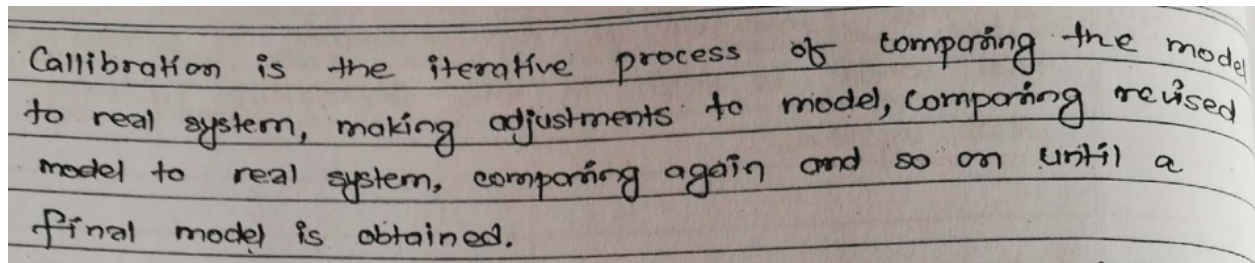 Callibration is the iterative process of comparing the model
to real system, making adjustments to model, comparing revised
model to real system, comparing again and so on until a
final model is obtained.